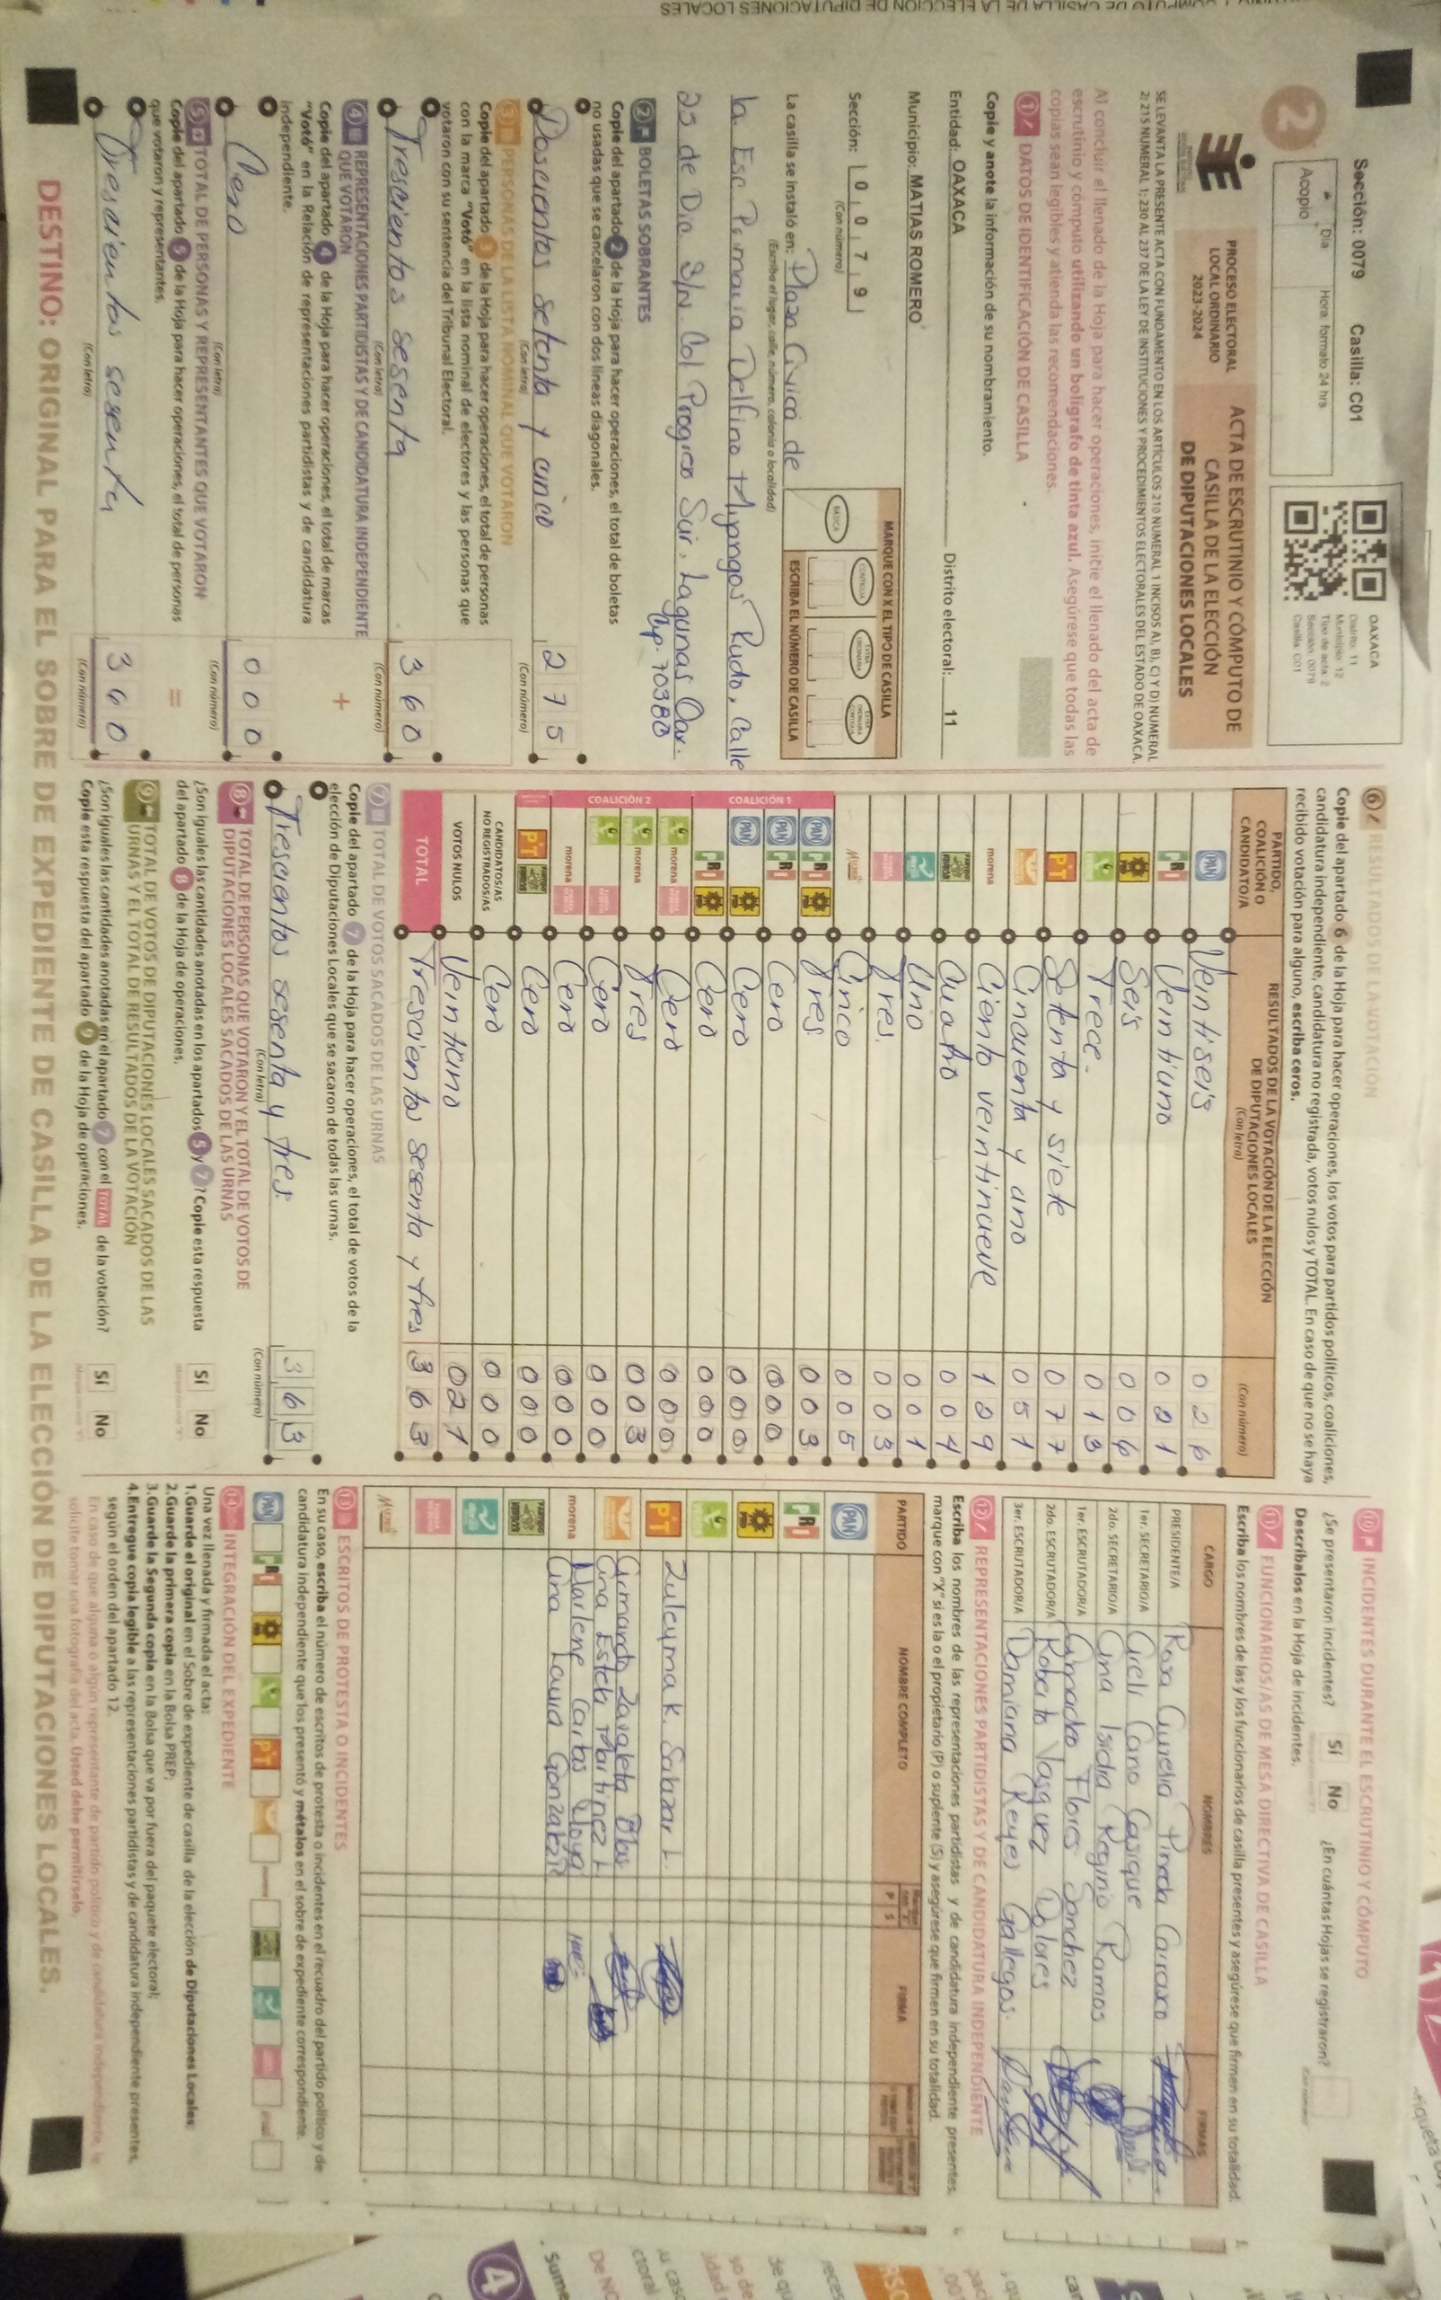 Sección: 0079 Casilla: C01
Día Hora: formato 24 hrs
Acopio
OAXACA
Distrito: 11
Municipio: 12
Tipo de acta: 2
Sección: 0079
Casilla: C01
2
PROCESO ELECTORAL
LOCAL ORDINARIO
2023-2024
ACTA DE ESCRUTINIO Y CÓMPUTO DE
CASILLA DE LA ELECCIÓN
DE DIPUTACIONES LOCALES
SE LEVANTA LA PRESENTE ACTA CON FUNDAMENTO EN LOS ARTÍCULOS 210 NUMERAL 1 INCISOS A), B), C) Y D) NUMERAL
2; 215 NUMERAL 1; 230 AL 237 DE LA LEY DE INSTITUCIONES Y PROCEDIMIENTOS ELECTORALES DEL ESTADO DE OAXACA.
Al concluir el llenado de la Hoja para hacer operaciones, inicie el llenado del acta de
escrutinio y cómputo utilizando un bolígrafo de tinta azul. Asegúrese que todas las
copias sean legibles y atienda las recomendaciones.
1 DATOS DE IDENTIFICACIÓN DE CASILLA
Copie y anote la información de su nombramiento.
Entidad: OAXACA Distrito electoral: 11
Municipio: MATIAS ROMERO
Sección: 0 0 7 9
(Con número)
MARQUE CON X EL TIPO DE CASILLA
BÁSICA CONTIGUA
ESCRIBA EL NÚMERO DE CASILLA
La casilla se instaló en: Plaza Cívica de
(Escriba el lugar, calle, número, colonia o localidad)
la Esc Primaria Delfino Mijangos Rudo, Calle
25 de Dic S/N Col Progreso Sur, Lagunas Oax.
cp. 70380
2 BOLETAS SOBRANTES
Copie del apartado 2 de la Hoja para hacer operaciones, el total de boletas
no usadas que se cancelaron con dos líneas diagonales.
Doscientos setenta y cinco 2 7 5
(Con letra) (Con número)
3 PERSONAS DE LA LISTA NOMINAL QUE VOTARON
Copie del apartado 3 de la Hoja para hacer operaciones, el total de personas
con la marca "Votó" en la lista nominal de electores y las personas que
votaron con su sentencia del Tribunal Electoral.
Trescientos sesenta 3 6 0
(Con letra) (Con número)
4 REPRESENTACIONES PARTIDISTAS Y DE CANDIDATURA INDEPENDIENTE
QUE VOTARON
+
Copie del apartado 4 de la Hoja para hacer operaciones, el total de marcas
"Votó" en la Relación de representaciones partidistas y de candidatura
independiente.
Cero 0 0 0
(Con letra) (Con número)
5 TOTAL DE PERSONAS Y REPRESENTANTES QUE VOTARON
=
Copie del apartado 5 de la Hoja para hacer operaciones, el total de personas
que votaron y representantes.
Trescientos sesenta 3 6 0
(Con letra) (Con número)
6 RESULTADOS DE LA VOTACIÓN
Copie del apartado 6 de la Hoja para hacer operaciones, los votos para partidos políticos, coaliciones,
candidatura independiente, candidatura no registrada, votos nulos y TOTAL. En caso de que no se haya
recibido votación para alguno, escriba ceros.
PARTIDO,
COALICIÓN O
CANDIDATO/A
RESULTADOS DE LA VOTACIÓN DE LA ELECCIÓN
DE DIPUTACIONES LOCALES
(Con letra) (Con número)
PAN Veintiseis 0 2 6
PRI Veintiuno 0 2 1
PRD Seis 0 0 6
Trece 0 1 3
PT Setenta y siete 0 7 7
Cincuenta y uno 0 5 1
morena Ciento veintinueve 1 2 9
Cuatro 0 0 4
Uno 0 0 1
Tres 0 0 3
Mujer Cinco 0 0 5
COALICIÓN 1
PAN PRI PRD Tres 0 0 3
PAN PRI Cero 0 0 0
PAN PRD Cero 0 0 0
PRI PRD Cero 0 0 0
COALICIÓN 2
morena Cero 0 0 0
morena Tres 0 0 3
Cero 0 0 0
morena Cero 0 0 0
PT Cero 0 0 0
CANDIDATOS/AS
NO REGISTRADOS/AS Cero 0 0 0
VOTOS NULOS Veintiuno 0 2 1
TOTAL Trescientos sesenta y tres 3 6 3
7 TOTAL DE VOTOS SACADOS DE LAS URNAS
Copie del apartado 7 de la Hoja para hacer operaciones, el total de votos de la
elección de Diputaciones Locales que se sacaron de todas las urnas.
Trescientos sesenta y tres 3 6 3
(Con letra) (Con número)
8 TOTAL DE PERSONAS QUE VOTARON Y EL TOTAL DE VOTOS DE
DIPUTACIONES LOCALES SACADOS DE LAS URNAS
¿Son iguales las cantidades anotadas en los apartados 5 y 7? Copie esta respuesta
del apartado 8 de la Hoja de operaciones.
Sí No
9 TOTAL DE VOTOS DE DIPUTACIONES LOCALES SACADOS DE LAS
URNAS Y EL TOTAL DE RESULTADOS DE LA VOTACIÓN
¿Son iguales las cantidades anotadas en el apartado 7 con el TOTAL de la votación?
Copie esta respuesta del apartado 9 de la Hoja de operaciones.
Sí No
10 INCIDENTES DURANTE EL ESCRUTINIO Y CÓMPUTO
¿Se presentaron incidentes? Sí No ¿En cuántas Hojas se registraron?
Descríbalos en la Hoja de incidentes.
11 FUNCIONARIOS/AS DE MESA DIRECTIVA DE CASILLA
Escriba los nombres de las y los funcionarios de casilla presentes y asegúrese que firmen en su totalidad.
CARGO NOMBRES FIRMAS
PRESIDENTE/A Rosa Aurelia Pineda Carrasco
1er. SECRETARIO/A Areli Cano Casique
2do. SECRETARIO/A Ana Isidra Regino Ramos
1er. ESCRUTADOR/A Amadeo Flores Sanchez
2do. ESCRUTADOR/A Roberto Vasquez Dolores
3er. ESCRUTADOR/A Damiana Reyes Gallegos
12 REPRESENTACIONES PARTIDISTAS Y DE CANDIDATURA INDEPENDIENTE
Escriba los nombres de las representaciones partidistas y de candidatura independiente presentes,
marque con "X" si es la o el propietario (P) o suplente (S) y asegúrese que firmen en su totalidad.
PARTIDO NOMBRE COMPLETO P S FIRMA
PAN
PRI
PRD
PT Zuleyma K. Salazar L.
Armando Zavaleta Blas
Ana Estela Martinez L
morena Marlene Cartas Loya
Ana Laura Gonzalez
Mujer
13 ESCRITOS DE PROTESTA O INCIDENTES
En su caso, escriba el número de escritos de protesta o incidentes en el recuadro del partido político y de
candidatura independiente que los presentó y métalos en el sobre de expediente correspondiente.
PAN PRI PRD PT
14 INTEGRACIÓN DEL EXPEDIENTE
Una vez llenada y firmada el acta:
1.Guarde el original en el Sobre de expediente de casilla de la elección de Diputaciones Locales;
2.Guarde la primera copia en la Bolsa PREP;
3.Guarde la Segunda copia en la Bolsa que va por fuera del paquete electoral;
4.Entregue copia legible a las representaciones partidistas y de candidatura independiente presentes,
según el orden del apartado 12.
En caso de que alguna o algún representante de partido político y de candidatura independiente, le
solicite tomar una fotografía del acta, Usted debe permitírselo.
DESTINO: ORIGINAL PARA EL SOBRE DE EXPEDIENTE DE CASILLA DE LA ELECCIÓN DE DIPUTACIONES LOCALES.